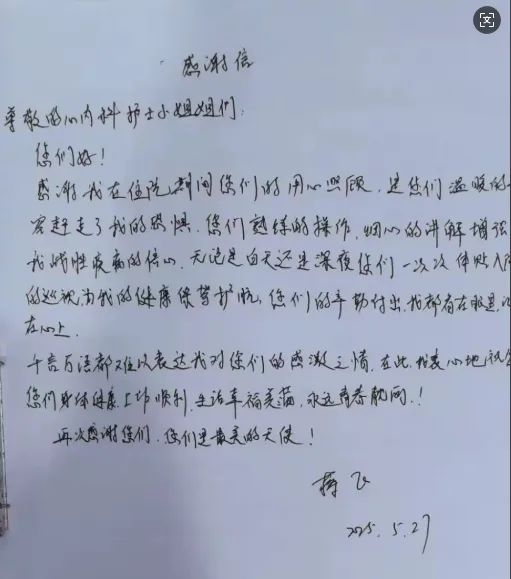 感谢信
尊敬的心内科护士小姐姐们:
您们好!
感谢我在住院期间您们的用心照顾,是您们温暖的
容赶走了我的恐惧,您们熟练的操作,细心的讲解增强
我战胜疾病的信心,无论是白天还是深夜您们一次次体贴入
的巡视为我的健康保驾护航,您们的辛勤付出,我都看在眼里,
在心上.
千言万语都难以表达我对您们的感激之情,在此,我衷心地祝
您们身体健康,工作顺利,生活幸福美满,永远青春靓丽.!
再次感谢您们,您们是最美的天使!
2025.5.27